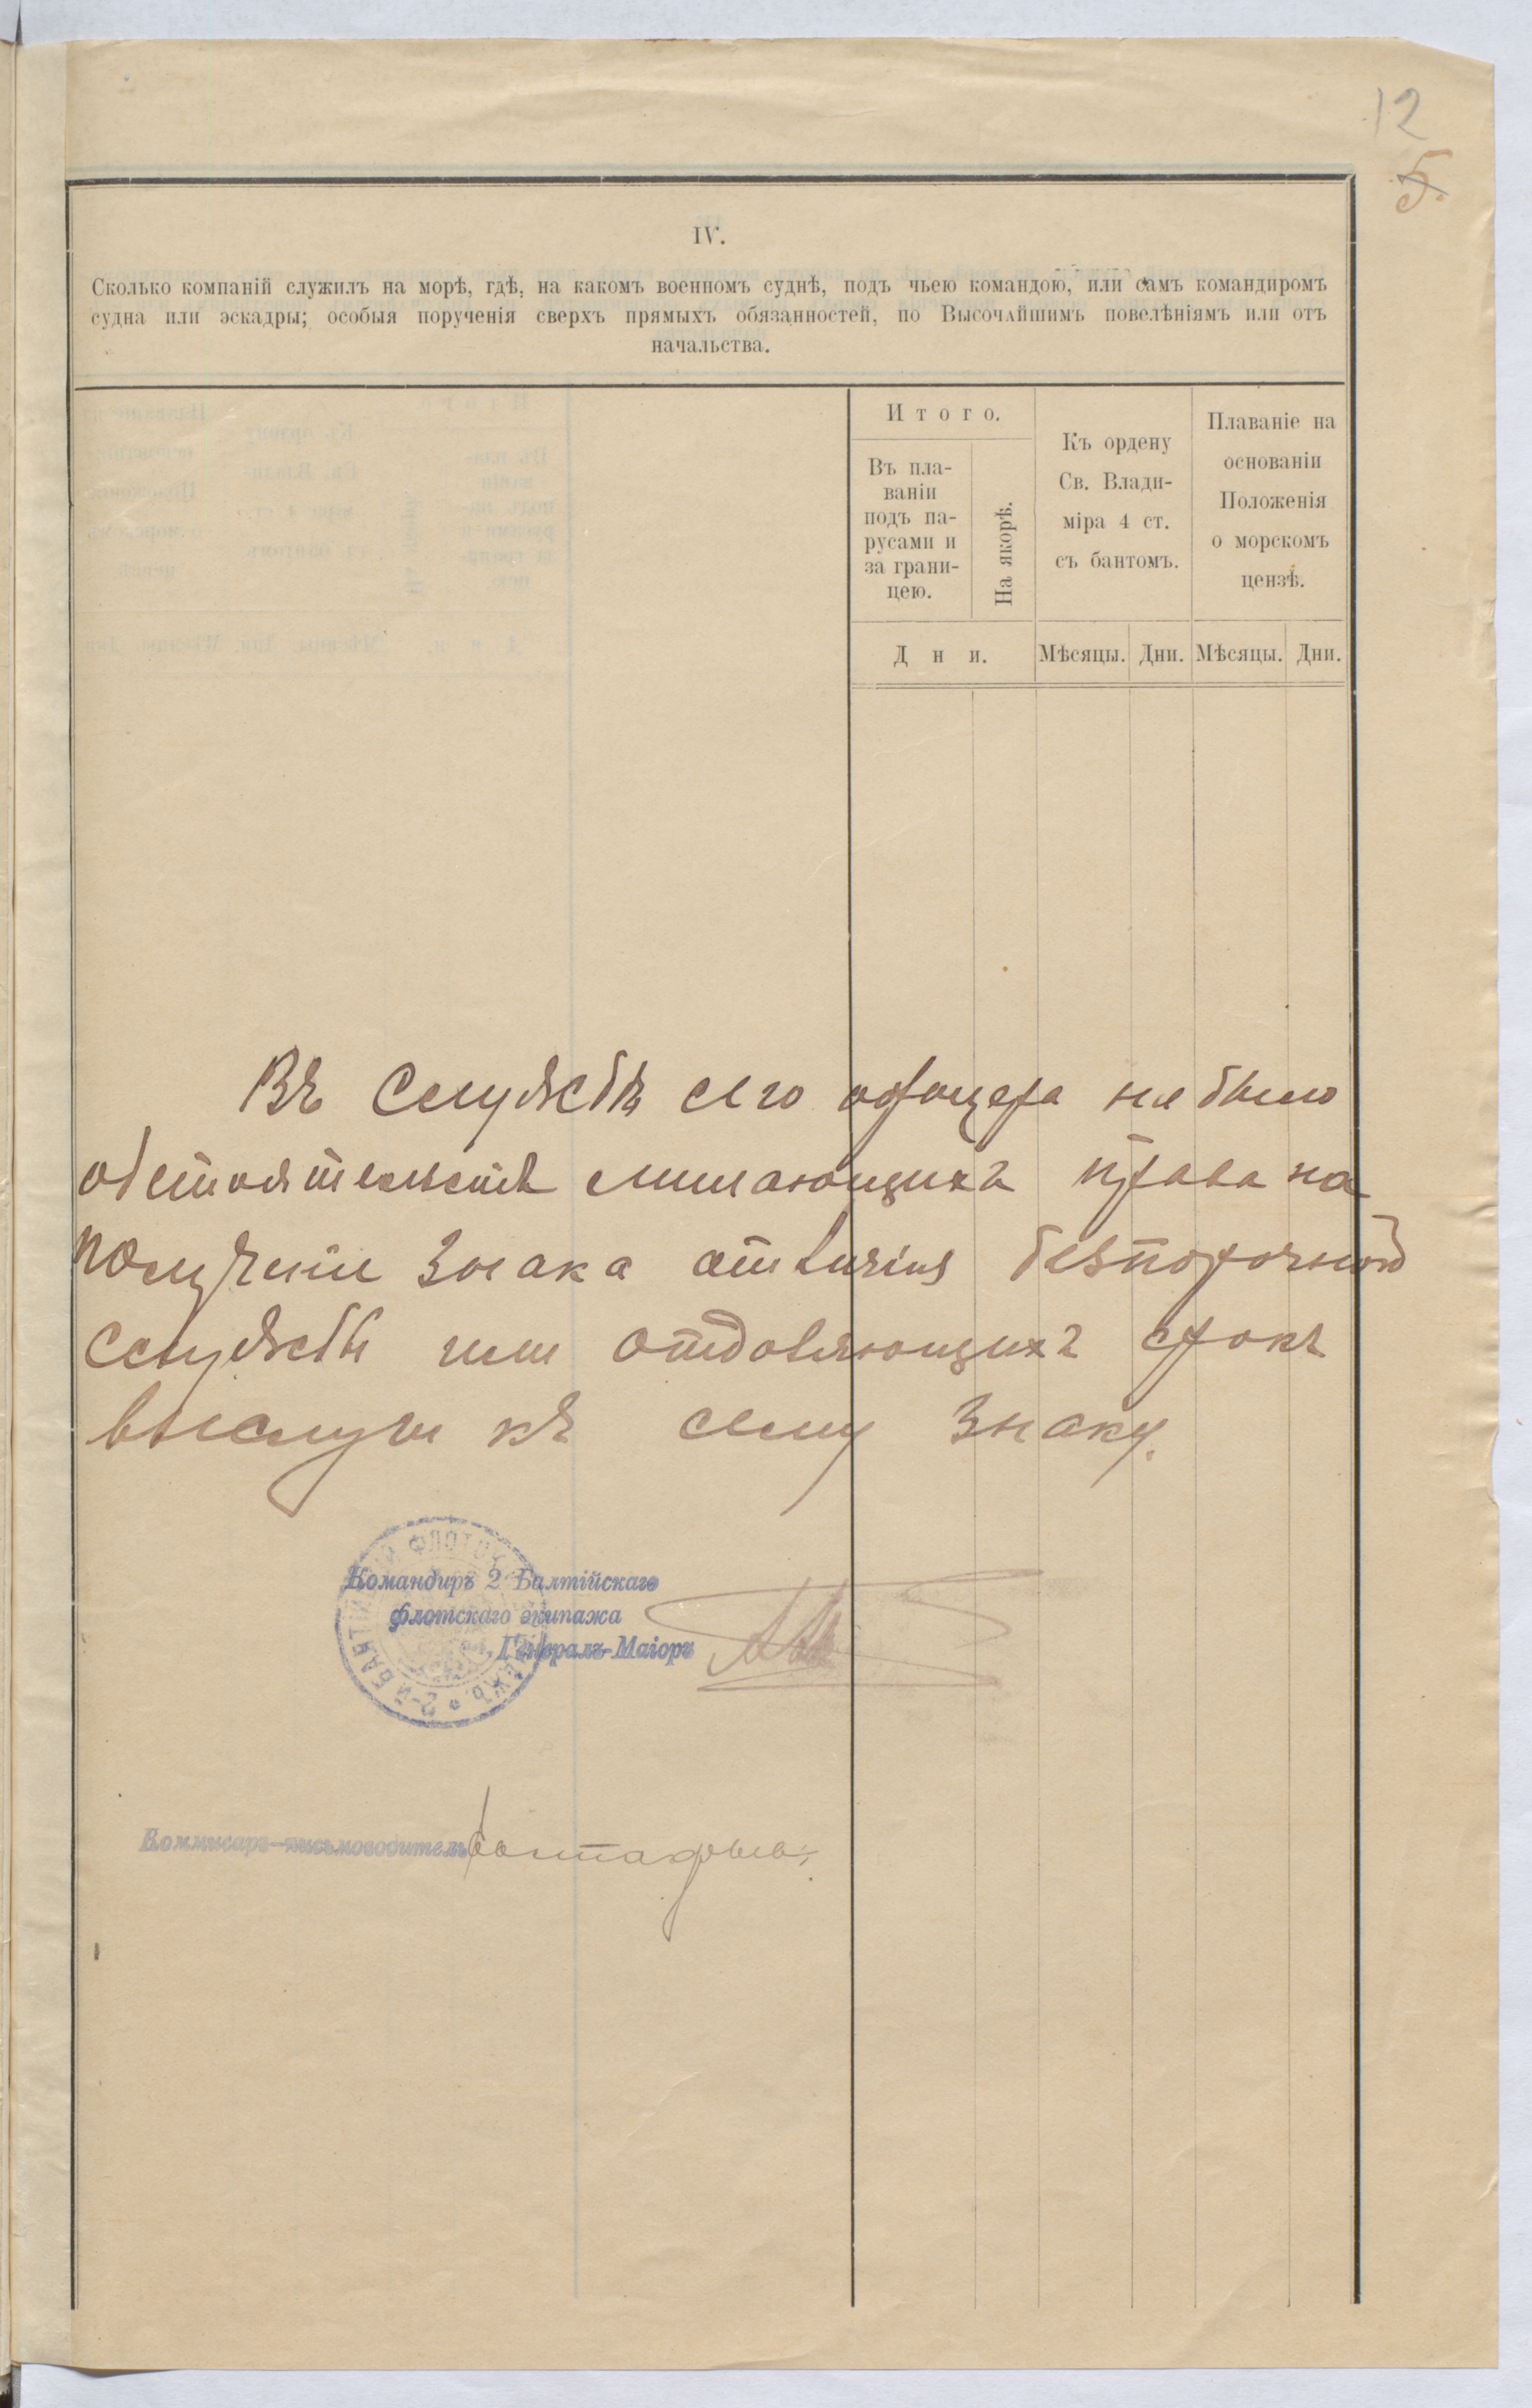 12
5.
IV.
Сколько компаній служилъ на морѣ, гдѣ, на какомъ военномъ суднѣ, подъ чьею командою, или самъ командиромъ
судна или эскадры; особыя порученія сверхъ прямыхъ обязанностей, по Высочайшимъ повелѣніямъ или отъ
начальства.
Итого.
Въ пла-
ваніи
подъ па-
русами и
за грани-
цею.
На якорѣ.
Дни.
Къ ордену
Св. Влади-
міра 4 ст.
съ бантомъ.
Мѣсяцы. Дни.
Плаваніе на
основаніи
Положенія
о морскомъ
цензѣ.
Мѣсяцы. Дни.
Въ службѣ сего офицера не было
обстоятельствъ лишающихъ права на
полученіе знака отличія безпорочной
службы или отдаляющихъ срокъ
выслуги къ сему знаку.
Командиръ 2 Балтійскаго
флотскаго экипажа
Генералъ-Маіоръ
2-й БАЛТІЙСКІЙ ФЛОТСКІЙ ЭКИПАЖЪ
Коммисаръ-письмоводитель